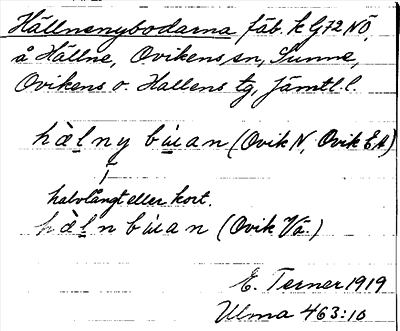 Hällnenybodarna fäb. k G72 NÖ,
å Hällne, Ovikens sn, Sunne,
Ovikens o. Hallens tg, Jämtl. l.
hȧl̲ny bu̇an (Ovik N, Ovik EA)
halvlångt eller kort.
hȧl̲n bu̇an (Ovik Vä.)
E. Terner 1919
Ulma 463:10